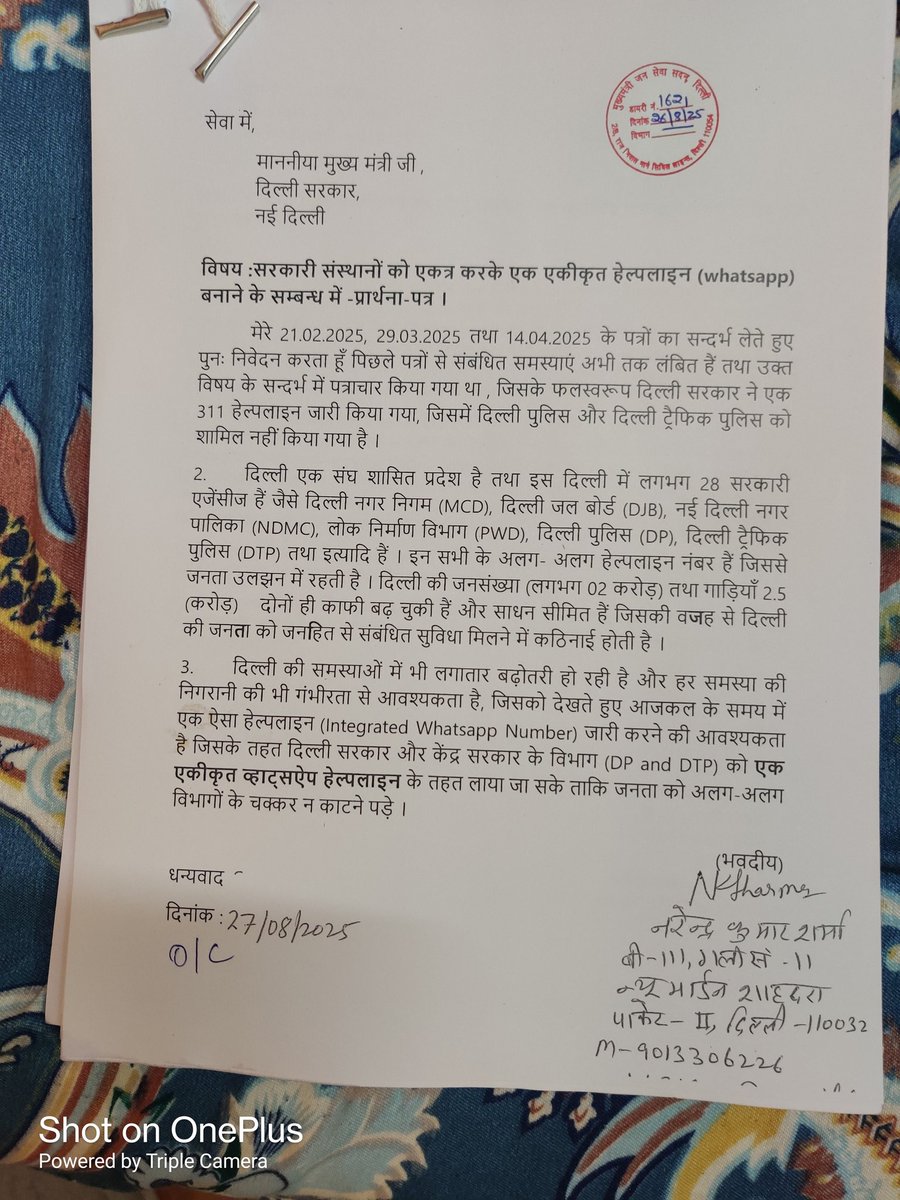 मुख्यमंत्री जन सेवा सदन, दिल्ली
डायरी नं. 1621
दिनांक 26/8/25
विभाग
सिविल लाइन्स, दिल्ली 110054
सेवा में,
माननीया मुख्य मंत्री जी ,
दिल्ली सरकार,
नई दिल्ली
विषय :सरकारी संस्थानों को एकत्र करके एक एकीकृत हेल्पलाइन (whatsapp)
बनाने के सम्बन्ध में -प्रार्थना-पत्र ।
मेरे 21.02.2025, 29.03.2025 तथा 14.04.2025 के पत्रों का सन्दर्भ लेते हुए
पुनः निवेदन करता हूँ पिछले पत्रों से संबंधित समस्याएं अभी तक लंबित हैं तथा उक्त
विषय के सन्दर्भ में पत्राचार किया गया था , जिसके फलस्वरूप दिल्ली सरकार ने एक
311 हेल्पलाइन जारी किया गया, जिसमें दिल्ली पुलिस और दिल्ली ट्रैफिक पुलिस को
शामिल नहीं किया गया है ।
2. दिल्ली एक संघ शासित प्रदेश है तथा इस दिल्ली में लगभग 28 सरकारी
एजेंसीज हैं जैसे दिल्ली नगर निगम (MCD), दिल्ली जल बोर्ड (DJB), नई दिल्ली नगर
पालिका (NDMC), लोक निर्माण विभाग (PWD), दिल्ली पुलिस (DP), दिल्ली ट्रैफिक
पुलिस (DTP) तथा इत्यादि हैं । इन सभी के अलग- अलग हेल्पलाइन नंबर हैं जिससे
जनता उलझन में रहती है । दिल्ली की जनसंख्या (लगभग 02 करोड़) तथा गाड़ियाँ 2.5
(करोड़) दोनों ही काफी बढ़ चुकी हैं और साधन सीमित हैं जिसकी वजह से दिल्ली
की जनता को जनहित से संबंधित सुविधा मिलने में कठिनाई होती है ।
3. दिल्ली की समस्याओं में भी लगातार बढ़ोतरी हो रही है और हर समस्या की
निगरानी की भी गंभीरता से आवश्यकता है, जिसको देखते हुए आजकल के समय में
एक ऐसा हेल्पलाइन (Integrated Whatsapp Number) जारी करने की आवश्यकता
है जिसके तहत दिल्ली सरकार और केंद्र सरकार के विभाग (DP and DTP) को एक
एकीकृत व्हाट्सऐप हेल्पलाइन के तहत लाया जा सके ताकि जनता को अलग-अलग
विभागों के चक्कर न काटने पड़े ।
धन्यवाद
(भवदीय)
NKSharma
दिनांक : 27/08/2025
O/C
नरेन्द्र कुमार शर्मा
बी-111, गली सं -11
न्यू मार्डन शाहदरा
पाकेट- II, दिल्ली -110032
M-9013306226
Shot on OnePlus
Powered by Triple Camera